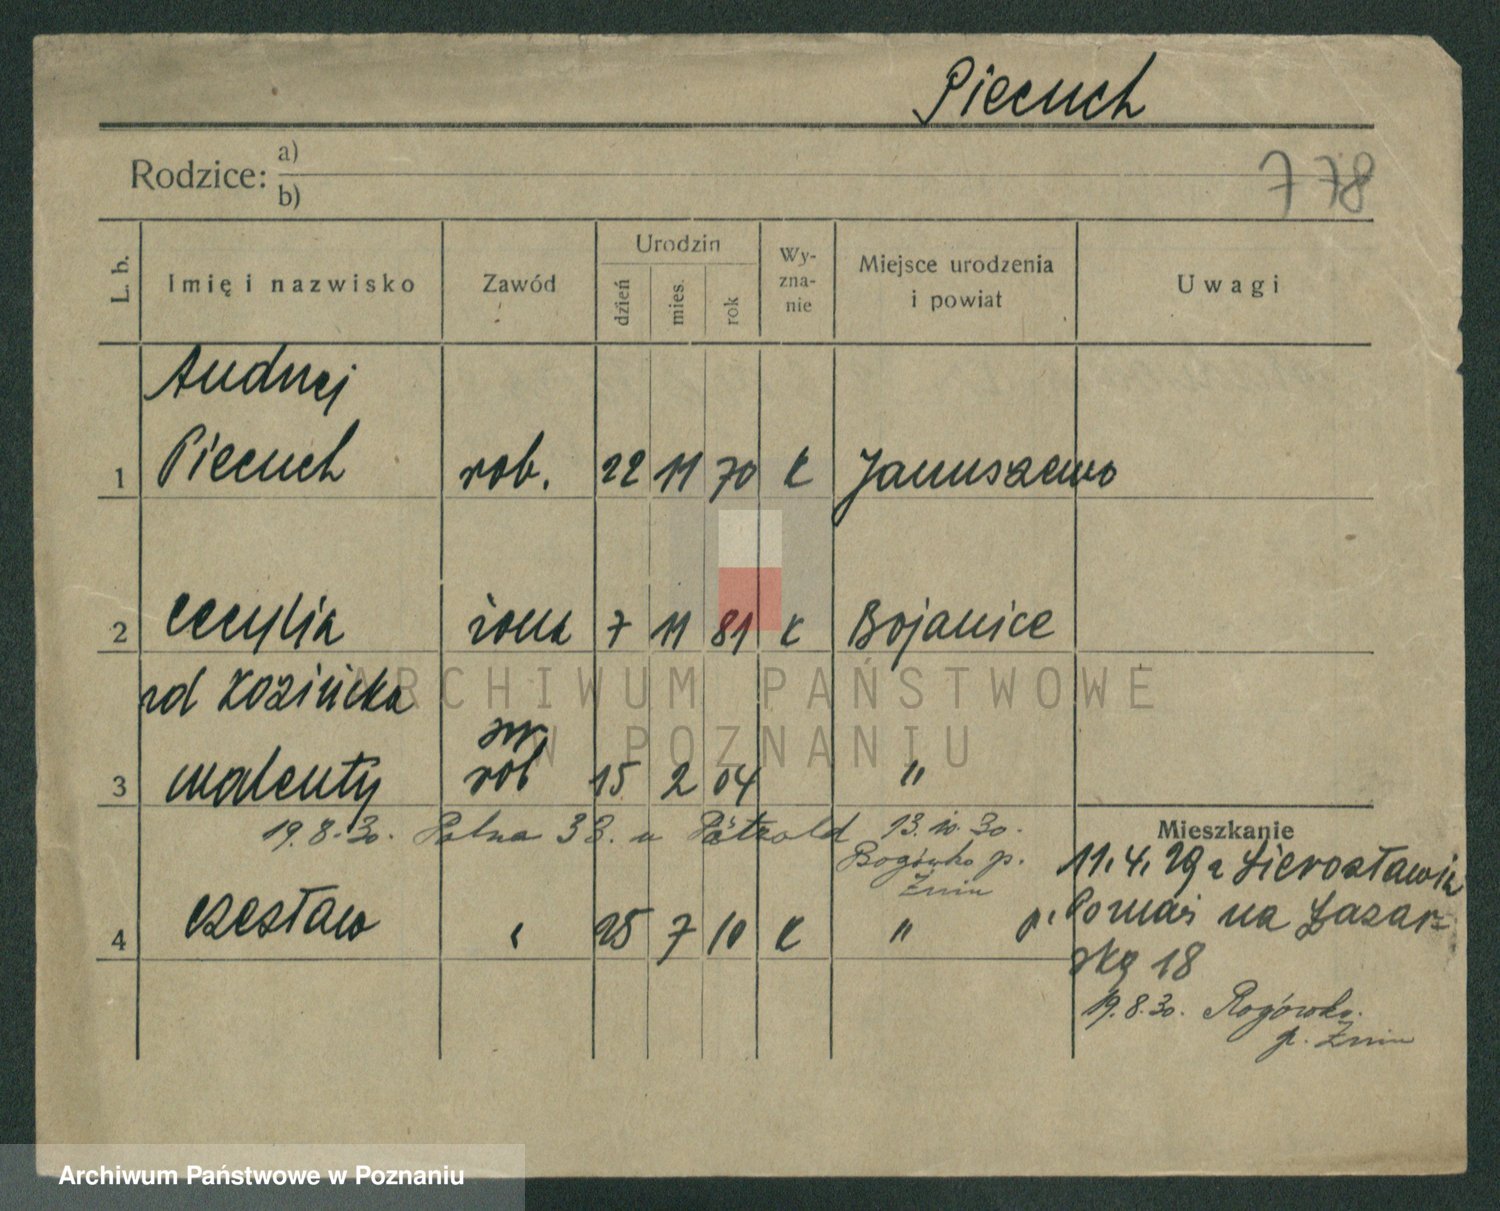 Piecuch
Rodzice: a)
b)
778
L. b.
Imię i nazwisko
Zawód
Urodzin
dzień
mies.
rok
Wy-
zna-
nie
Miejsce urodzenia
i powiat
Uwagi
Andrzej
1 Piecuch rob. 22 11 70 k Januszewo
2 Cecylia żona 7 11 81 k Bojanice
ARCHIWUM PAŃSTWOWE
W POZNANIU
3 Walenty rob 15 2 04 "
19.8.30. Polna 33. u 13.10.30.
p.
Żnin
4 Czesław 25 7 10 k "
Mieszkanie
11.4.29 z
p. Poznań na Łazar-
ską 18
19.8.30. Rogówko.
p. Żnin
Archiwum Państwowe w Poznaniu